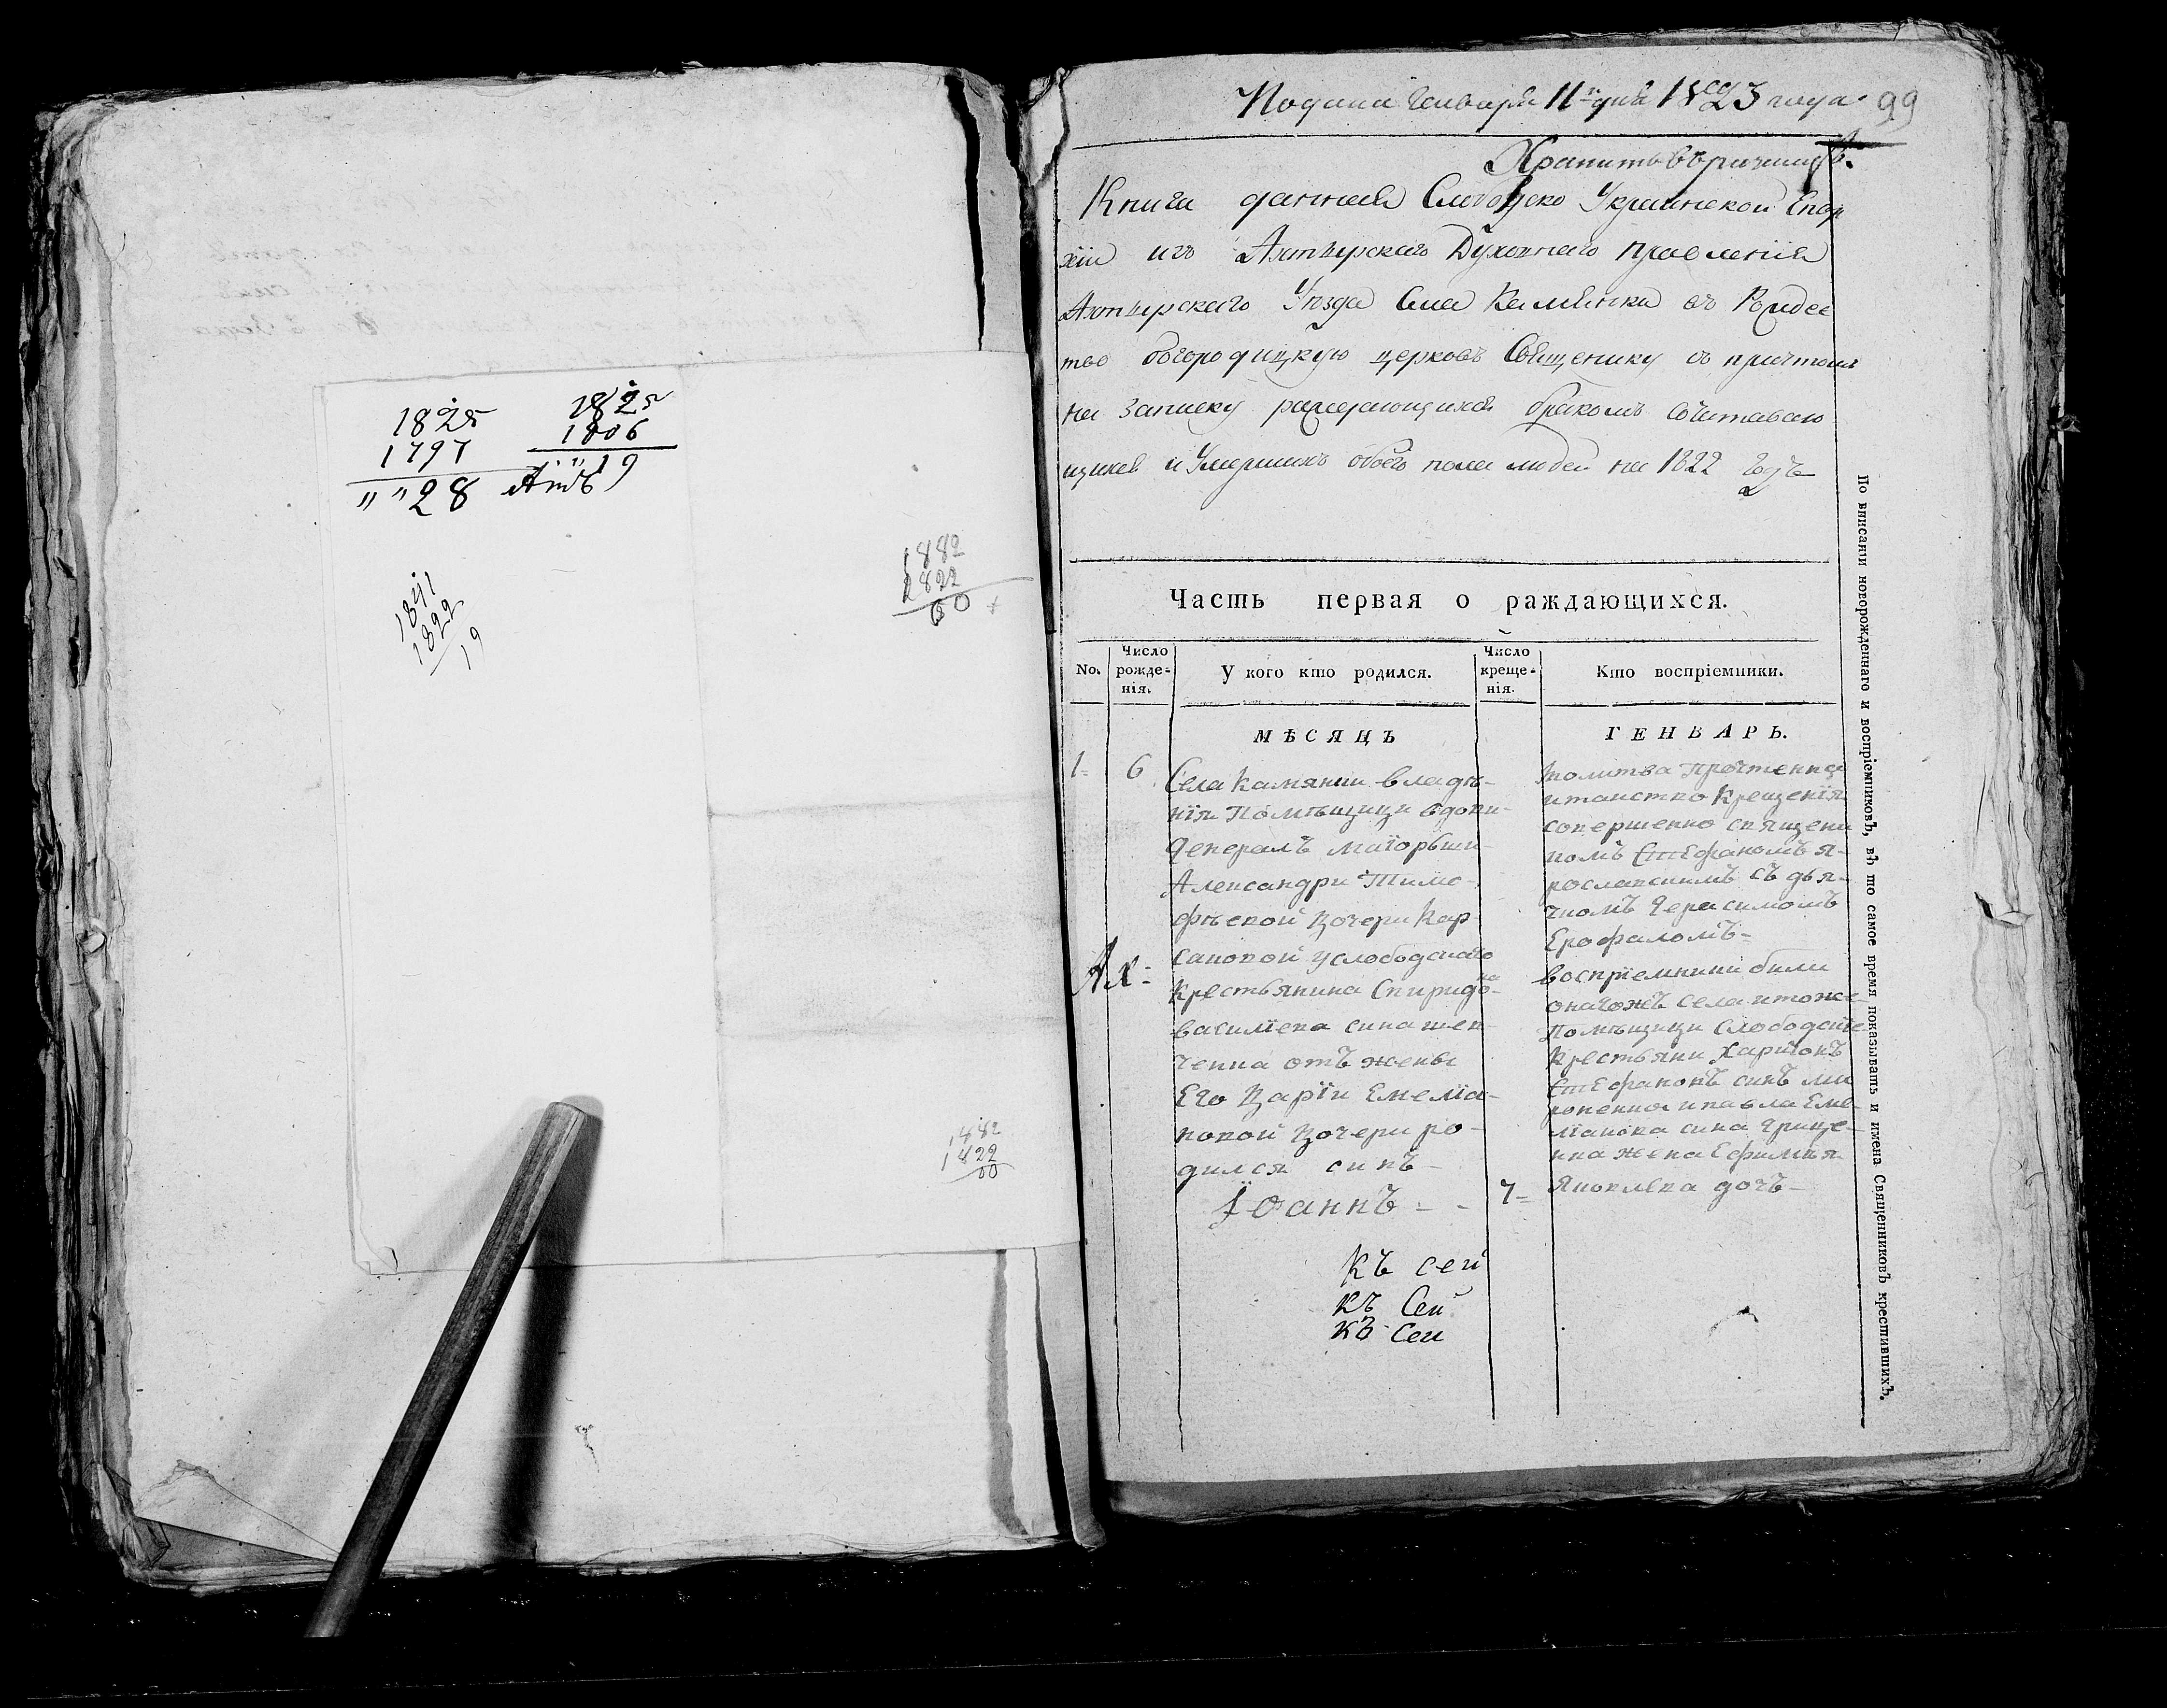 1825
1797
" " 28
1825
1806
" " 19
1841
1822
19
1882
1822
60
1882
1822
60
Подана Генваря 11 дня 1823 года
99
Хранить
Книга данная Слободско Украинской Епар
хіи изъ Ахтырскаго Духовнаго правленія
Ахтырскаго Уѣзда Села Камянки въ Рождес
тво богородицкую церковъ Священику съ причтомъ
на записку раждающихся бракомъ сочитаваю
щихся и Умершихъ обоего пола людей на 1822 годъ
Часть первая о раждающихся.
No.
Число рожде-нія.
У кого кто родился.
Число креще-нія.
Кто воспріемники.
МѢСЯЦЪ
ГЕНВАРЬ.
1
6
Села Камянки владѣ-
нія Помѣщици вдови
Генералъ маіорьши
Александри Тимо-
фѣевой дочери Кар
сановой услободского
Крестьянина Спиридона
василіева сина шев-
ченка отъ жены
Его Даріи Емеліа-
новой дочери ро-
дился синъ
Іоаннъ
7
молитва прочтенна
итаинство Крещенія
совершенно священи
комъ Стефаномъ я-
рославскимъ съ дья-
чкомъ Герасимомъ
Ерофаломъ
воспріемники били
оногожъ села итоже
Помѣщици слободскіе
Крестьяни Харитонъ
Стефановъ синъ ми
роненко и павла Еме-
ліанова сина Грице-
нка жена Ефимія
Яковлева дочъ
Ах
Къ сей
Къ Сей
Къ Сей
По вписаніи новорожденнаго и воспріемниковъ, въ то самое время показывать и имена Священниковъ крестившихъ.